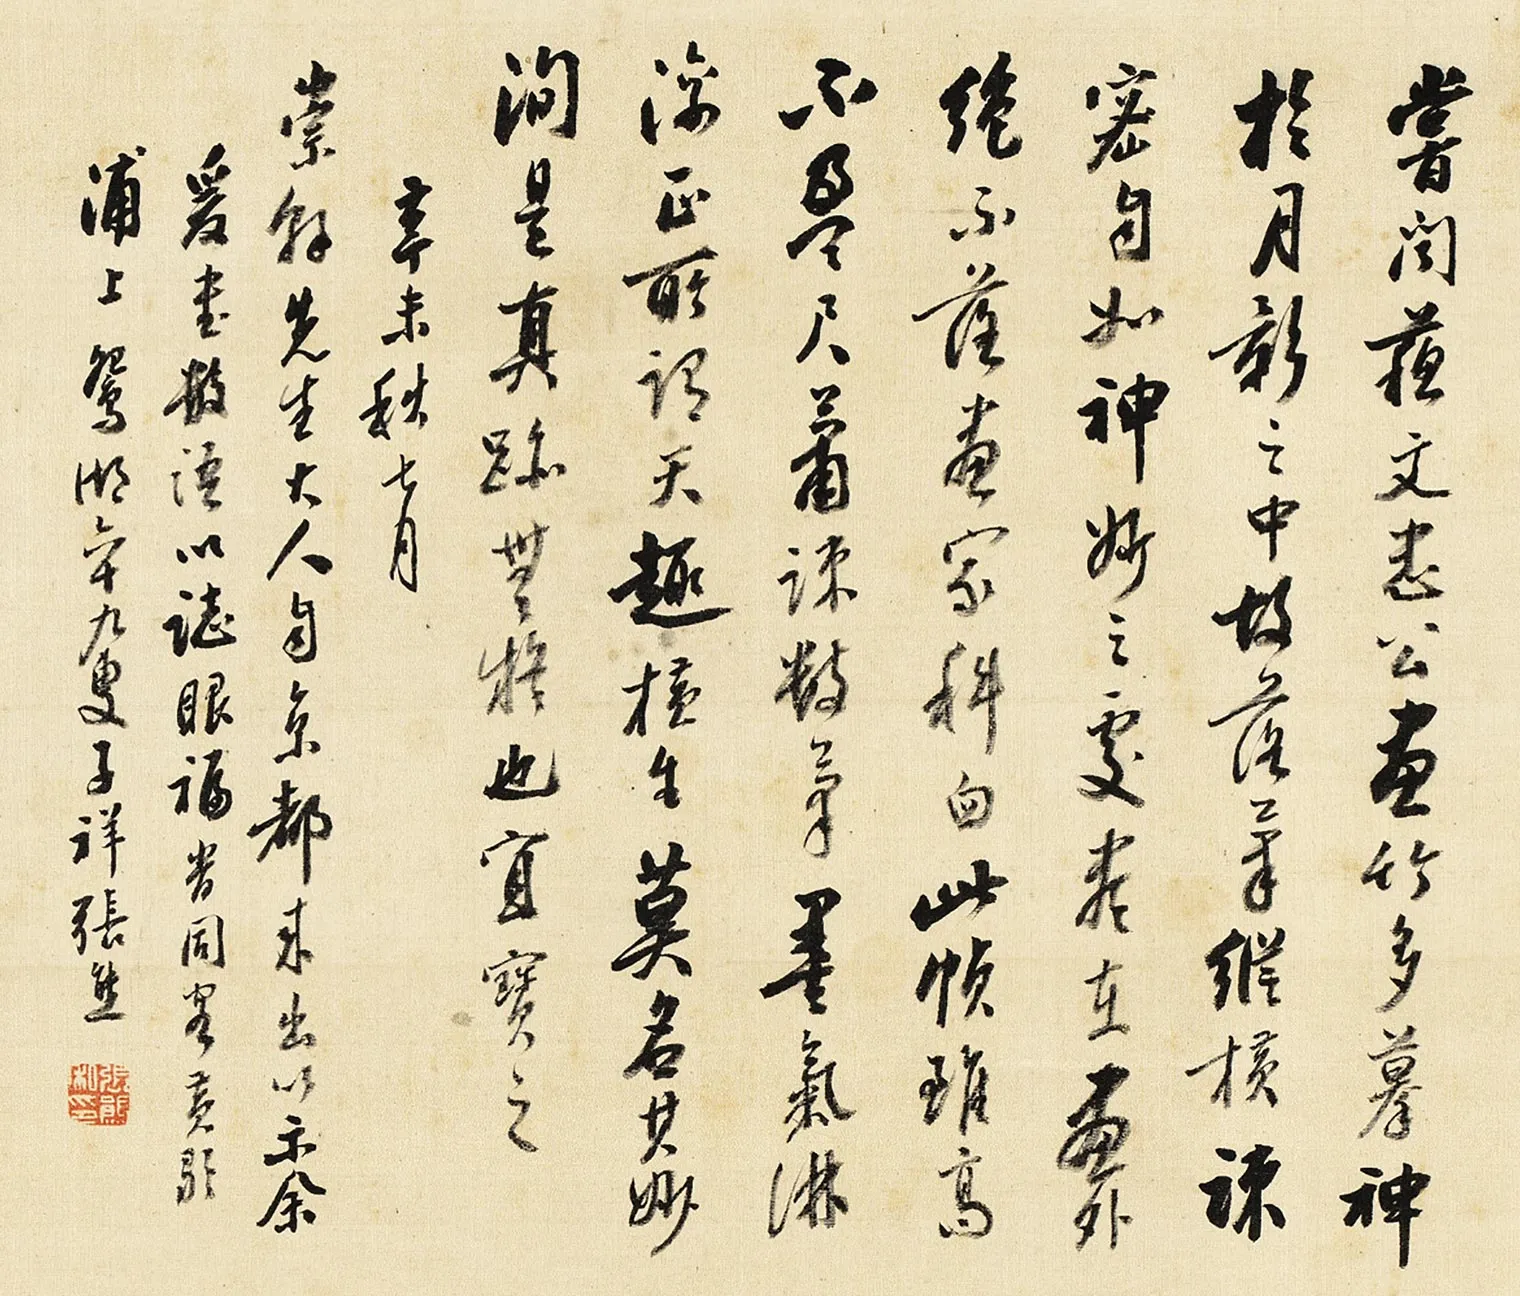 嘗聞蘇文忠公畫竹多摹神
於月影之中故落筆縱橫疎
密自如神妙之處盡在畫外
絕不落畫家科臼此幀雖高
不盈尺蕭疎數筆墨氣淋
漓正所謂天趣橫生莫名其妙
洵是真跡無疑也宜寶之
辛未秋七月
崇餘先生大人自京都來出以示余
爰書數語以誌眼福者同客黃歇
浦上鴛湖六十九叟子祥張熊